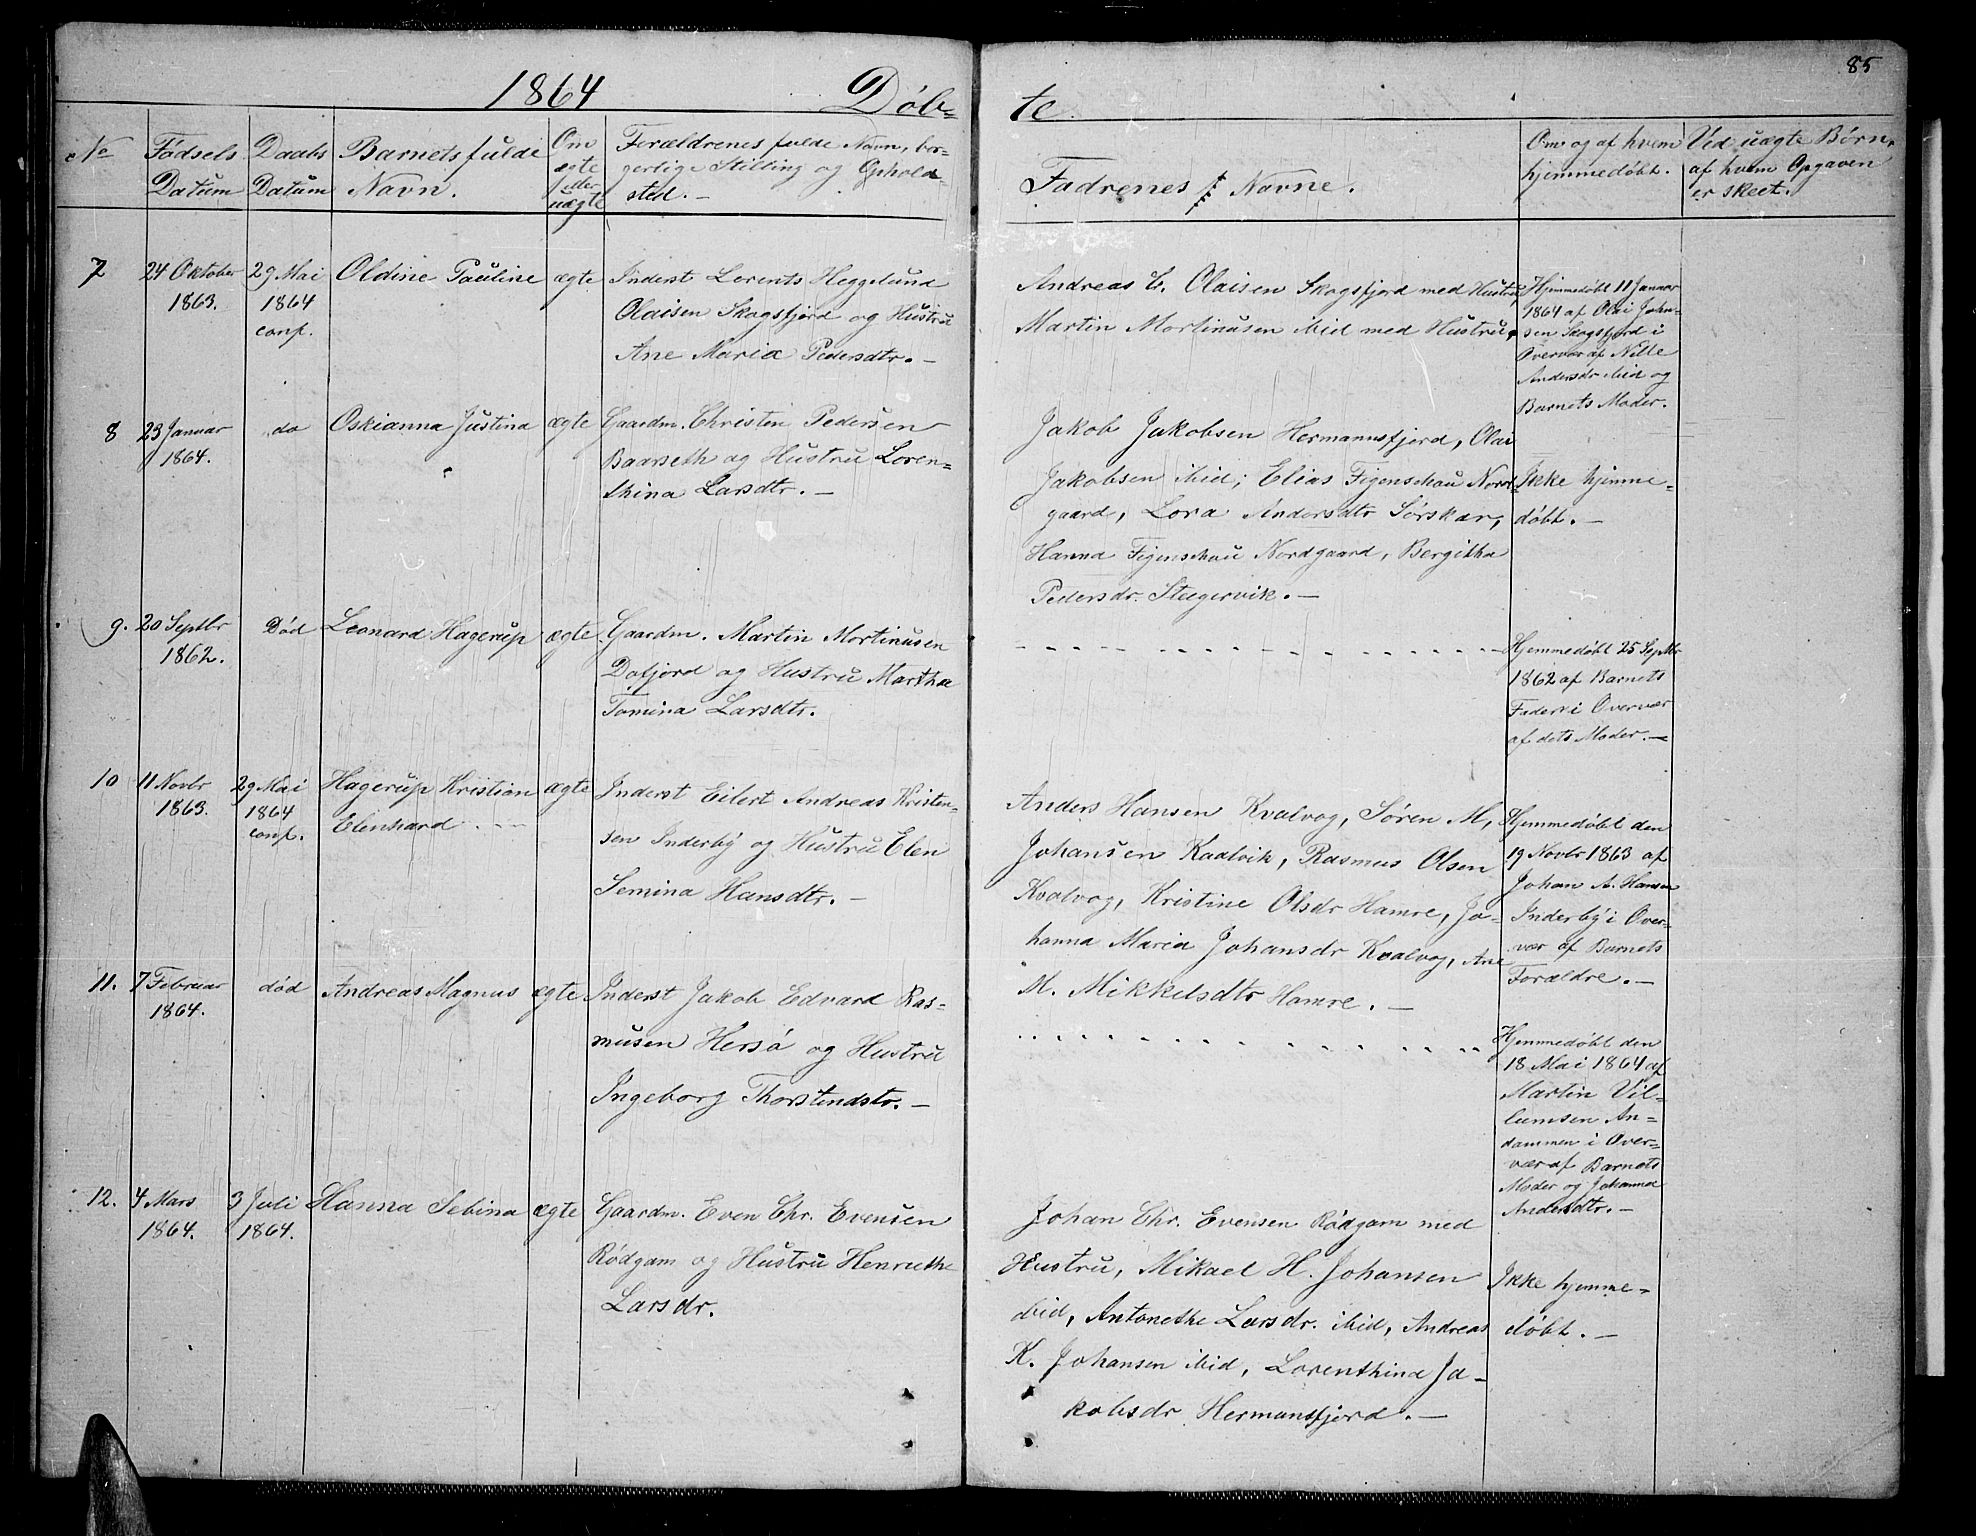 85
1864 Døb=
te.
No
Fødsels Datum
Daabs Datum
Barnets fulde Navn.
Om ægte eller uægte
Forældrenes fulde Navn, bor=
gerlige Stilling og Ophold=
sted. —
Fadrenes Navne.
Om og af hvem
hjemmedøbt.
Vid uægte Børn,
af hvem Opgaven
er skeet.
7 24 Oktober 1863. 29 Mai 1864 conf. Oldine Pauline ægte
Inderst Lorents Heggelund
Olaisen Skogsfjord og Hustru
Ane Maria Pedersdtr. —
Andreas E. Olaisen Skogsfjord med Hustru,
Martin Mortinusen ibid med Hustru,
Hjemmedøbt 11 Januar
1864 af Olai John=
sen Skogsfjord i
Overvær af Nille
Andersdr ibid og
Barnets Moder.
8 23 Januar 1864. do Oskianna Justina ægte
Gaardm. Christen Pedersen
Baarseth og Hustru Loren=
thina Larsdtr. —
Jakob Jakobsen Hermannsfjord, Olai
Jakobsen ibid; Elias Figenschau Nord=
gaard, Lora Andersdtr Sørskar,
Hanna Figenschau Nordgaard, Bergitha
Pedersdr. Steegervik. —
Ikke hjemme=
døbt. —
9. 20 Septbr 1862. Død Leonard Hagerup ægte
Gaardm. Martin Mortinusen
Dafjord og Hustru Martha
Tomina Larsdtr.
Hjemmedøbt 25 Septbr
1862 af Barnets
Fader i Overvær
af dets Moder. —
10 11 Novbr 1863. 29 Mai 1864 conf. Hagerup Kristian Elenhard ægte
Inderst Eilert Andreas Kristen=
sen Inderby og Hustru Elen
Semina Hansdtr. —
Anders Hansen Kvalvog, Søren M,
Johansen Kaalvik, Rasmus Olsen
Kvalvog, Kristine Olsdr Hamre, Jo=
hanna Maria Johansdr Kvalvog, Ane
M. Mikkelsdtr Hamre. —
Hjemmedøbt den
19 Novbr 1863 af
Johan A. Hansen
Inderby i Over=
vær af Barnets
Forældre. —
11. 7 Februar 1864. død Andreas Magnus ægte
Inderst Jakob Edvard Ras=
musen Hersø og Hustru
Ingeborg Thorstendstr. —
Hjemmedøbt den
18 Mai 1864 af
Martin Vil=
lumsen An=
dammen i Over=
vær af Barnets
Moder og Johanna
Andersdtr. —
12. 4 Mars 1864. 3 Juli 1864. Hanna Sebina ægte
Gaardm. Even Chr. Evensen
Rødgam og Hustru Henriethe
Larsdr.
Johan Chr. Evensen Rødgam med
Hustru, Mikael H. Johansen
ibid, Antonethe Larsdr. ibid, Andreas
K. Johansen ibid, Lorenthina Ja=
kobsdr Hermansfjord. —
Ikke hjemme=
døbt. —